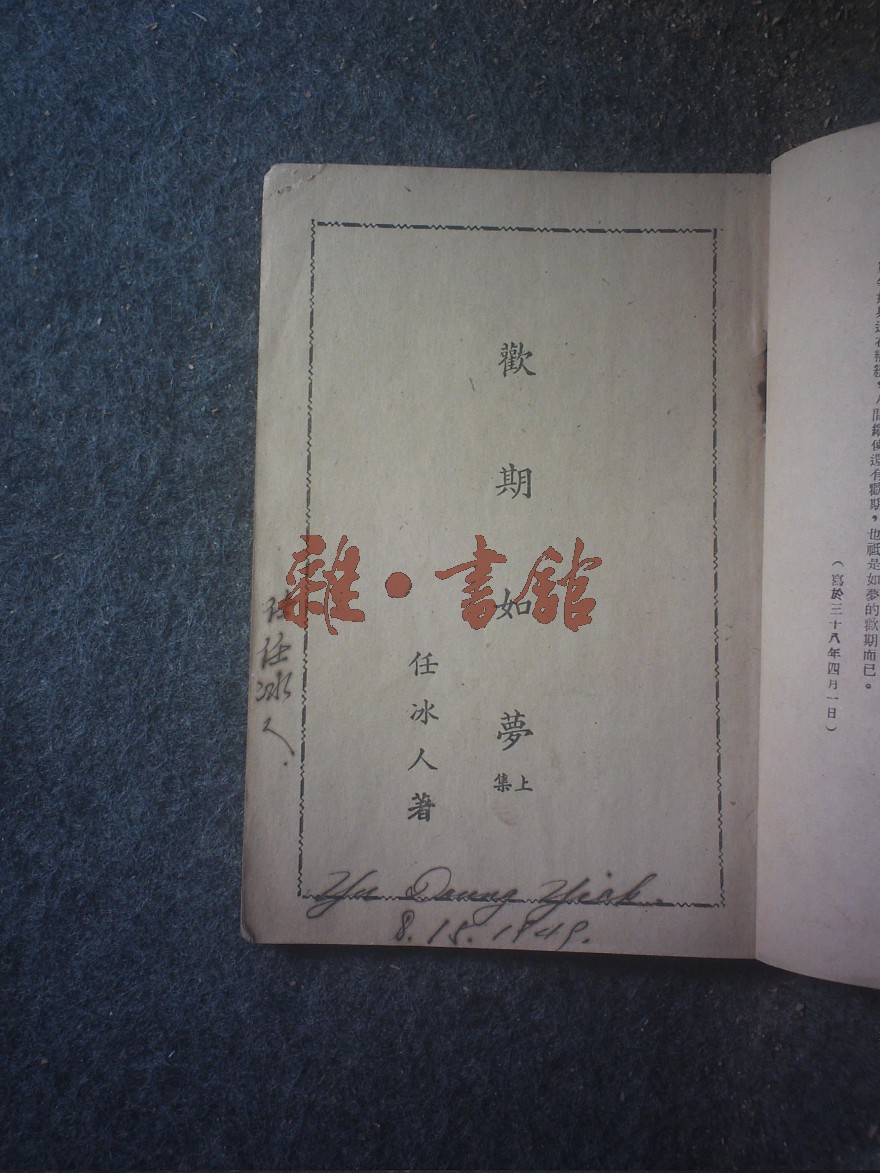 也祇是如夢的歡期而已。
（寫於三十八年四月一日）
歡期如夢
上集
任冰人著
任冰人
雜·書館
Yu Doung Yiak.
8.15.1949.